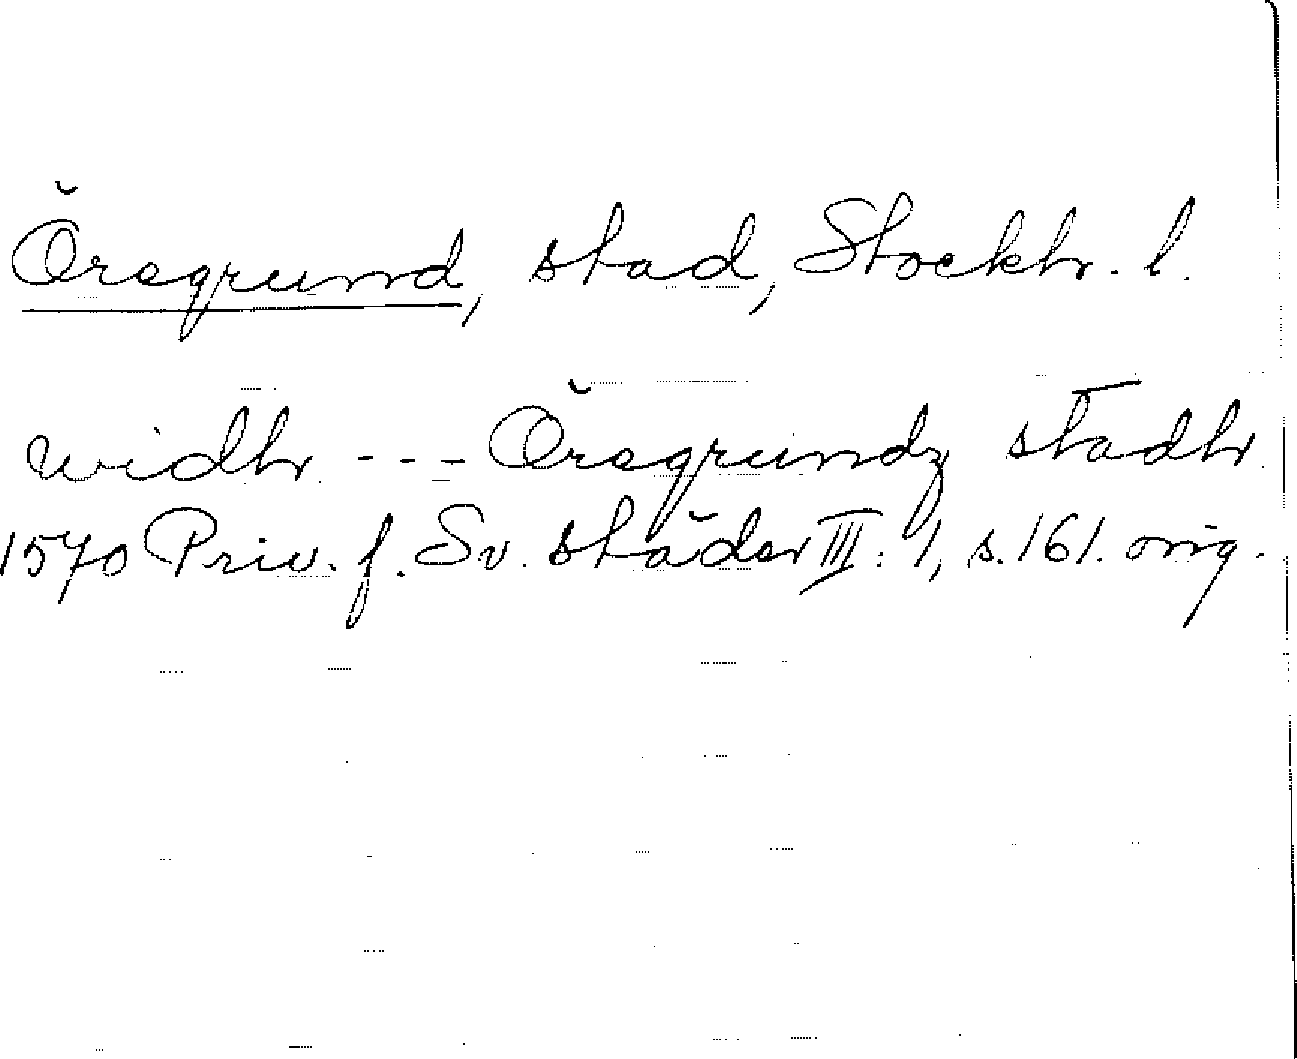 Öregrund, stad, Stockh. l.
widh --- Öregrundz stadh
1570 Priv. f. Sv. städer III: 1, s. 161. orig.